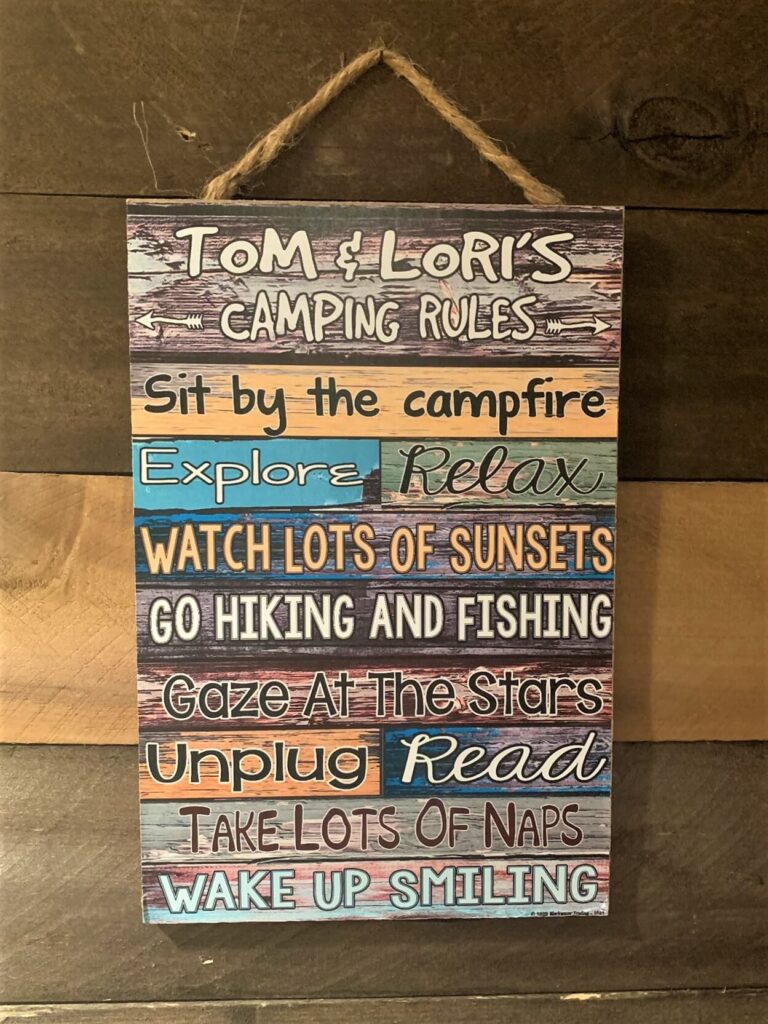 TOM & LORI'S
CAMPING RULES
Sit by the campfire
Explore Relax
WATCH LOTS OF SUNSETS
GO HIKING AND FISHING
Gaze At The Stars
Unplug Read
TAKE LOTS OF NAPS
WAKE UP SMILING